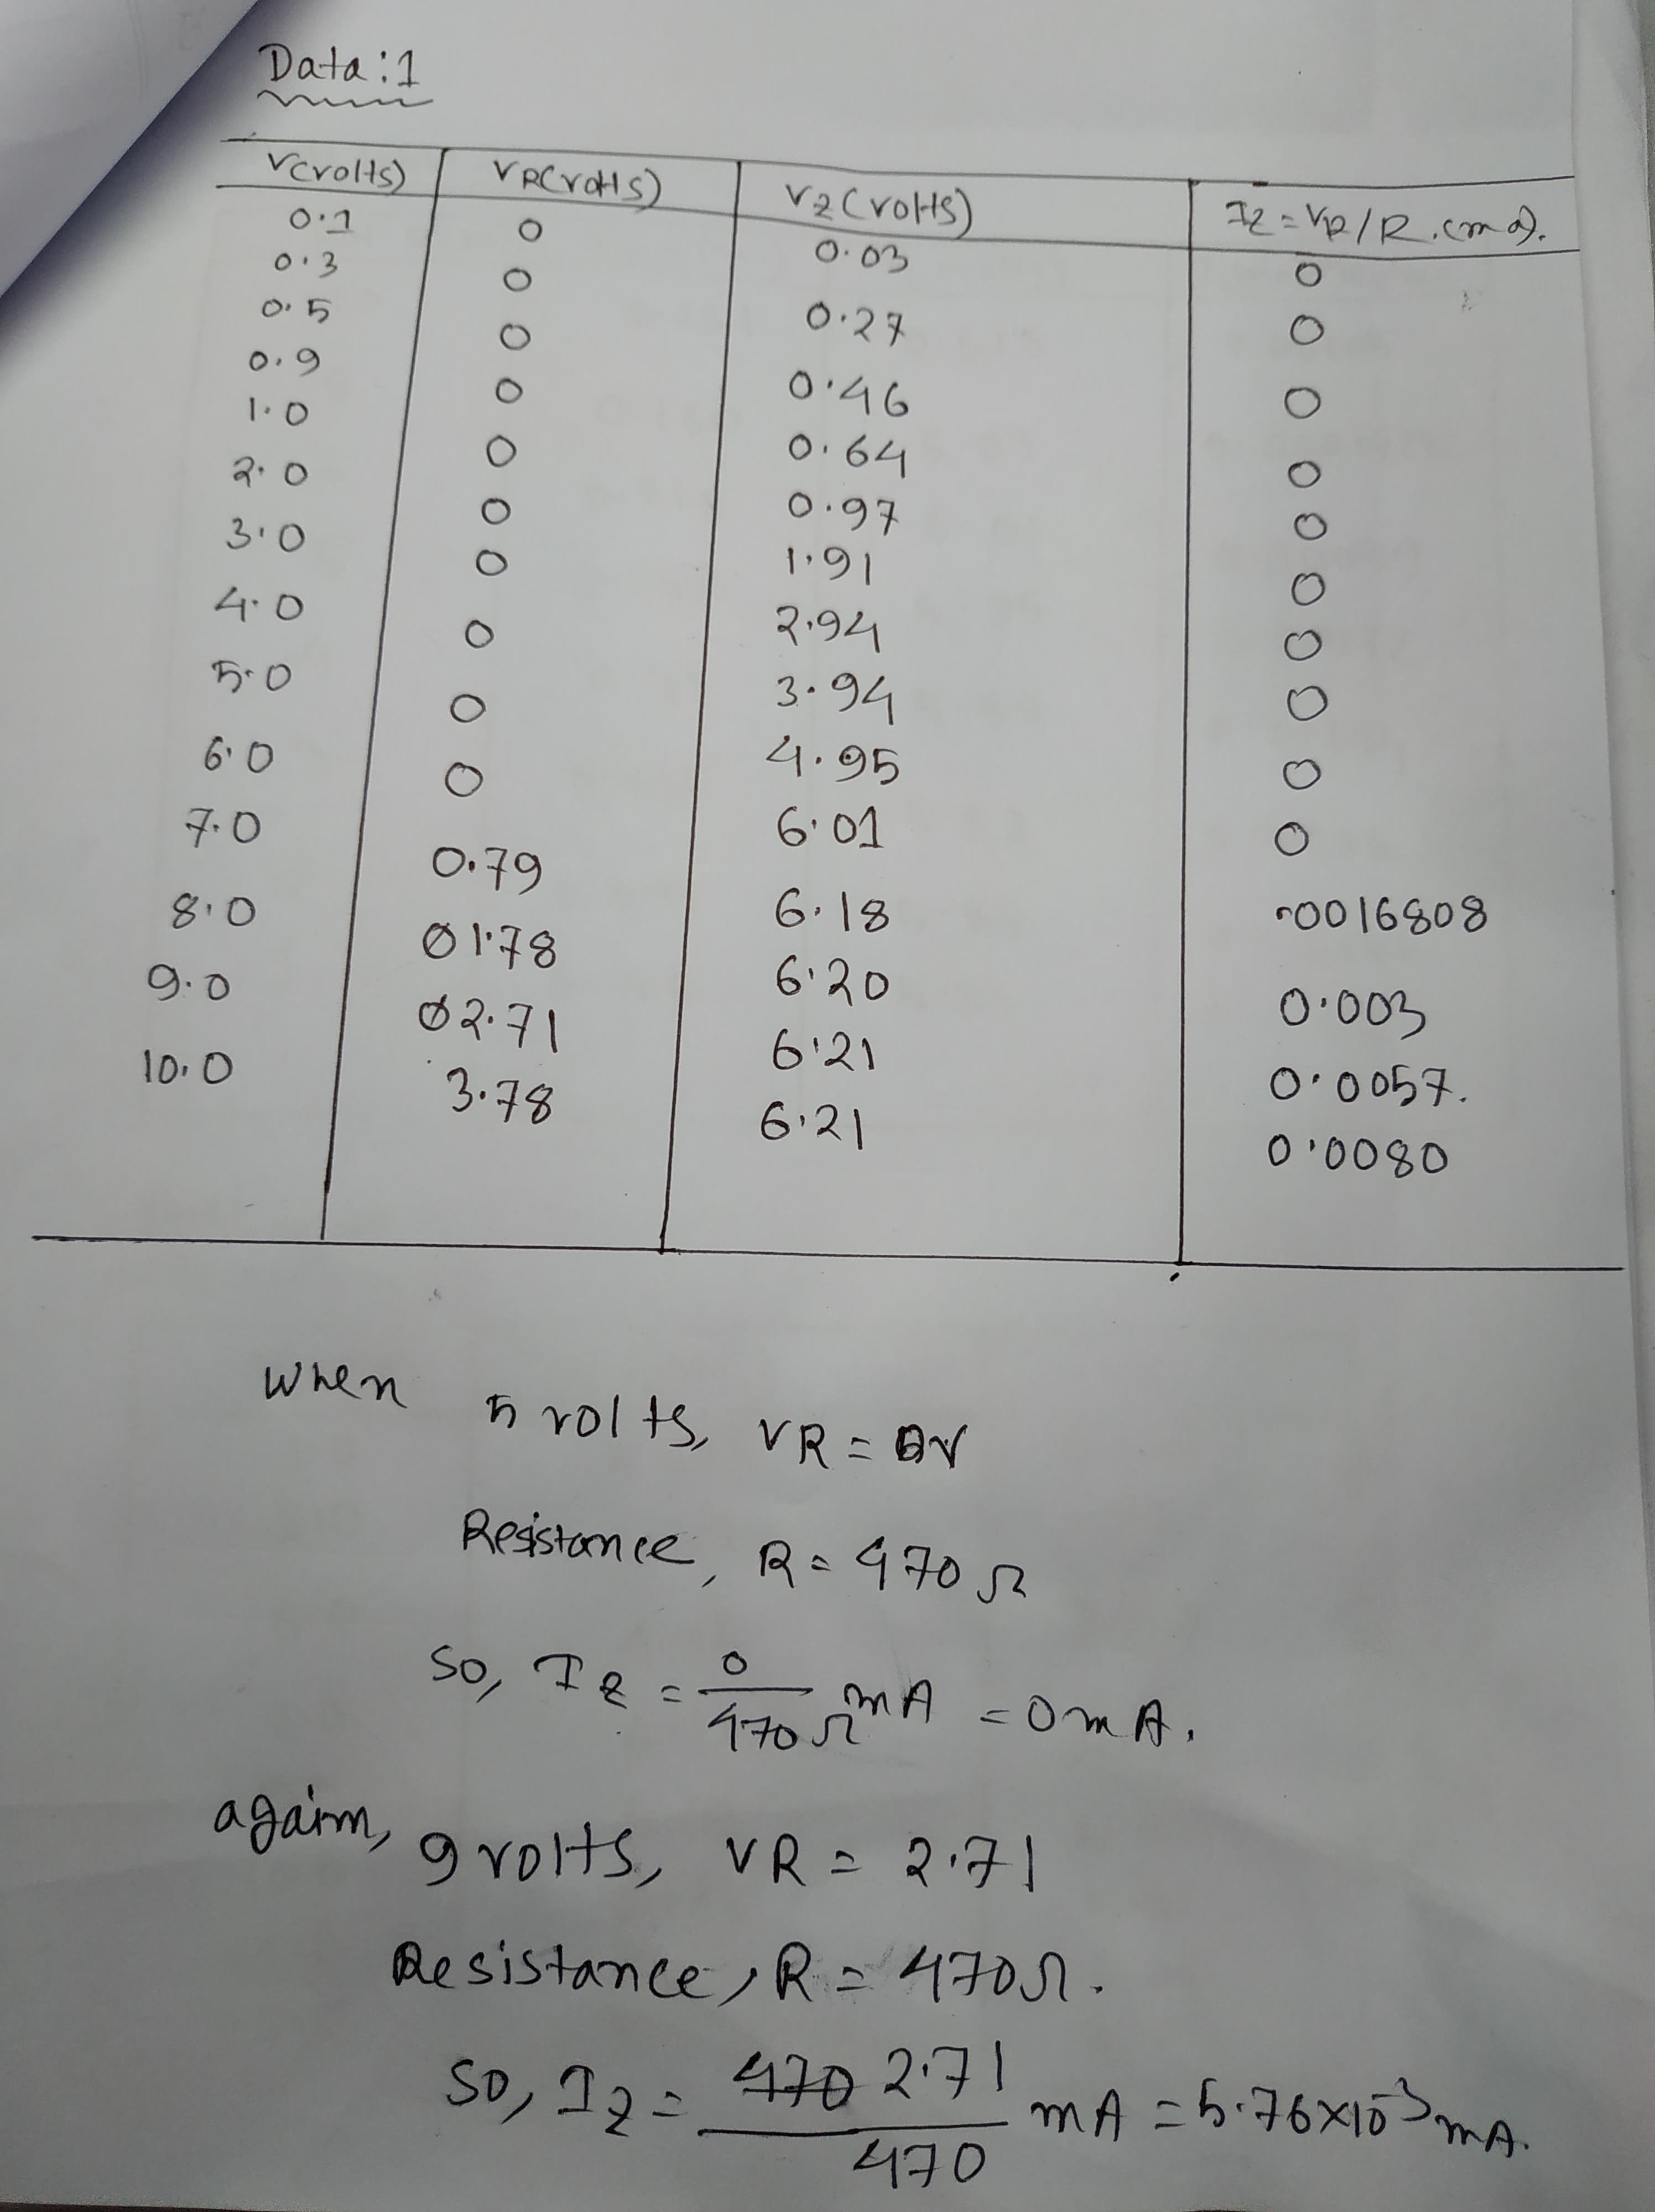 Data:1
V(volts) VR(volts) VZ(volts) IZ=VR/R.(mA).
0.1 0 0.03 0
0.3 0 0.27 0
0.5 0 0.46 0
0.9 0 0.64 0
1.0 0 0.97 0
2.0 0 1.91 0
3.0 0 2.94 0
4.0 0 3.94 0
5.0 0 4.95 0
6.0 0 6.01 0
7.0 0.79 6.18 .0016808
8.0 1.78 6.20 0.003
9.0 2.71 6.21 0.0057.
10.0 3.78 6.21 0.0080
When 5 volts, VR = 0V
Resistance, R = 470Ω
So, IZ = 0/470Ω mA = 0mA.
again, 9 volts, VR = 2.71
Resistance, R = 470Ω.
So, IZ = 2.71/470 mA = 5.76×10⁻³ mA.